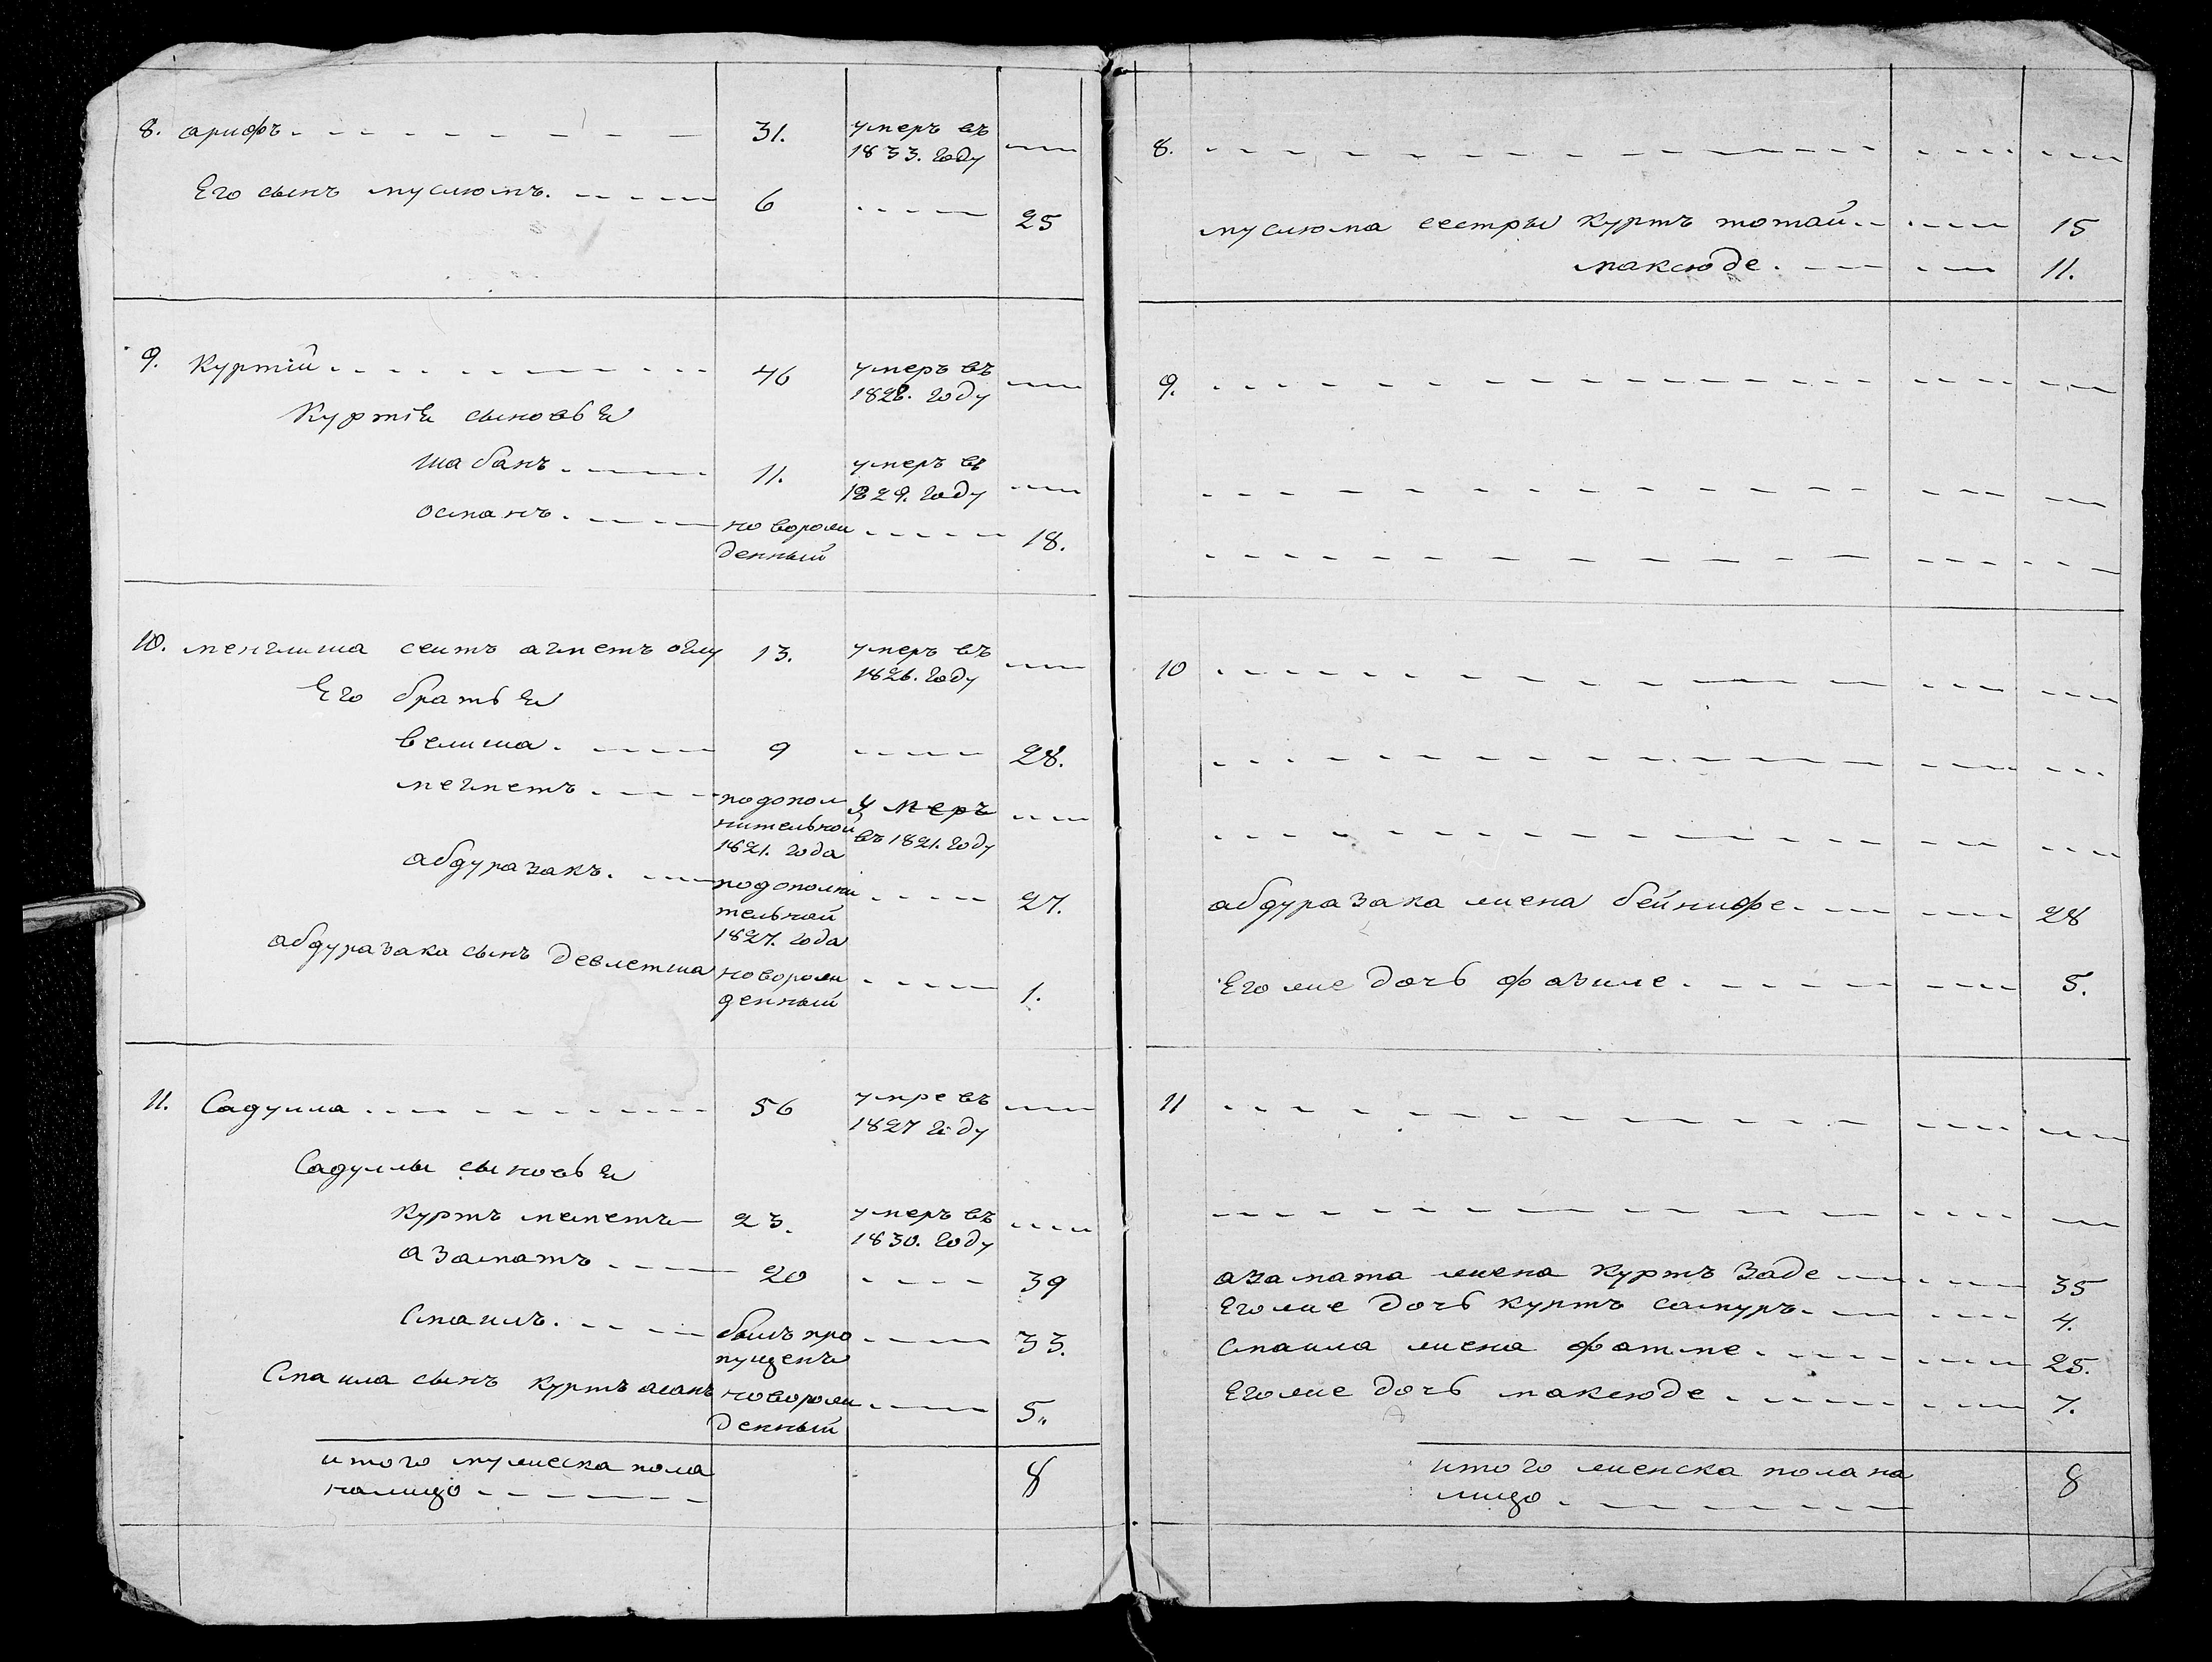 8. арифъ 31. умеръ въ
1833. году
Его сынъ муслюмъ. 6 25
9. Куртій 46 умеръ въ
1828. году
Куртія сыновья
шабанъ. 11. умеръ въ
1829. году
османъ. новорож 18.
денный
10. менглиша сеитъ агметъ оглу 13. умеръ въ
1826. году
Его братья
велиша. 9 28.
мегметъ. подопол умеръ
нительной въ 1821. году
1821. года
абдуразакъ. подополни 27.
тельной
1827. года
абдуразака сынъ девлетша новорож 1.
денный
11. Садулла 56 умре въ
1827 году
Садуллы сыновья
куртъ меметъ 23. умеръ въ
1830. году
азаматъ 20 39
Смаилъ. былъ про 33.
пущенъ
Смаила сынъ куртъ асанъ новорож 5.
денный
итого мужеска пола
налицо 8
8.
муслюма сестры куртъ тотай 15
максюде. 11.
9.
10
абдуразака жена бейнифе 28
Его же дочь фазиле 5.
11
азамата жена куртъ заде 35
Его же дочь куртъ самуръ 4.
Смаила жена фатме 25.
Его же дочь максюде 7.
итого женска пола на
лицо 8